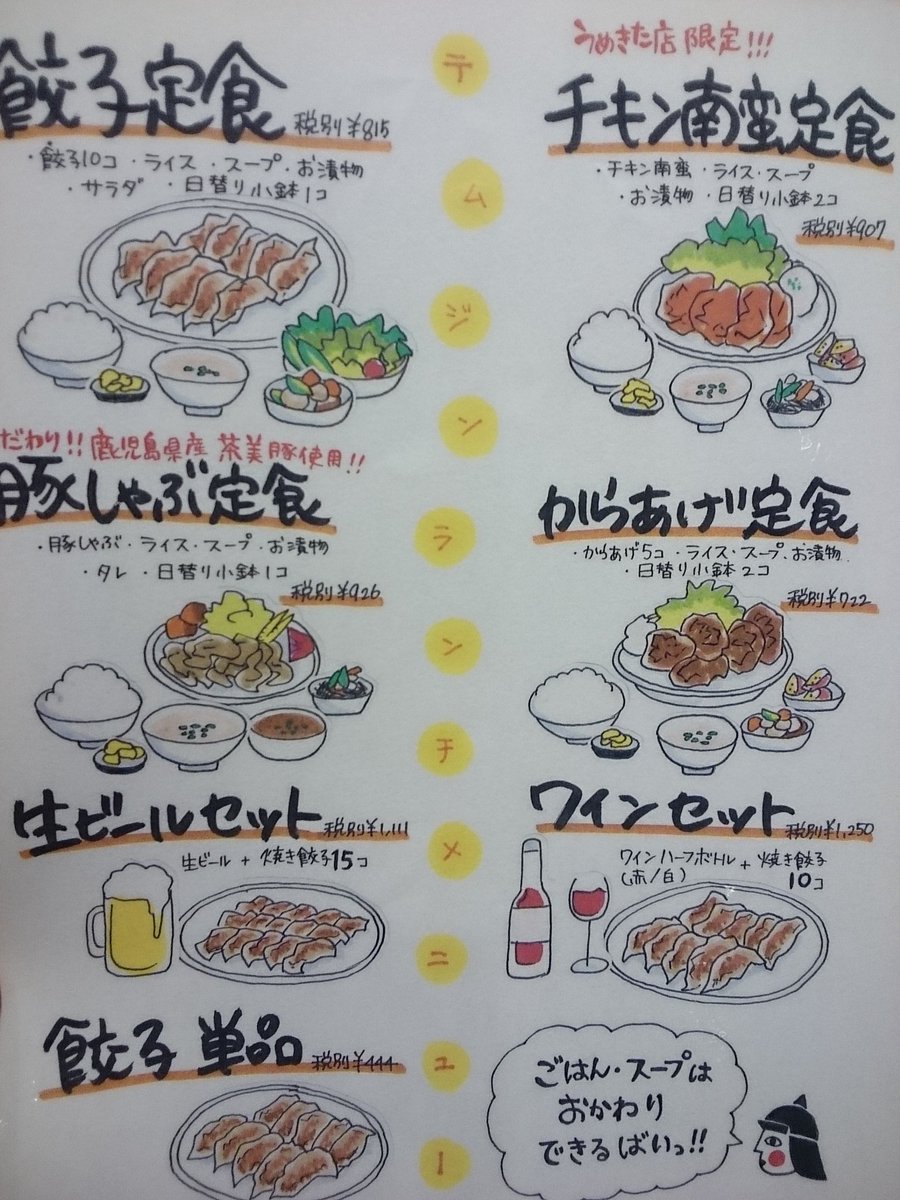 テムジンランチメニュー
餃子定食 税別¥815
・餃子10コ ・ライス ・スープ ・お漬物
・サラダ ・日替り小鉢1コ
うめきた店限定!!!
チキン南蛮定食
・チキン南蛮 ・ライス・スープ
・お漬物 ・日替り小鉢2コ
税別¥907
だわり!! 鹿児島県産 茶美豚使用!!
豚しゃぶ定食
・豚しゃぶ・ライス・スープ・お漬物
・タレ ・日替り小鉢1コ
税別¥926
からあげ定食
・からあげ5コ ・ライス・スープ・お漬物
・日替り小鉢2コ
税別¥722
生ビールセット 税別¥1,111
生ビール + 焼き餃子15コ
ワインセット 税別¥1,250
ワインハーフボトル + 焼き餃子
(赤/白) 10コ
餃子 単品 税別¥444
ごはん・スープは
おかわり
できるばいっ!!